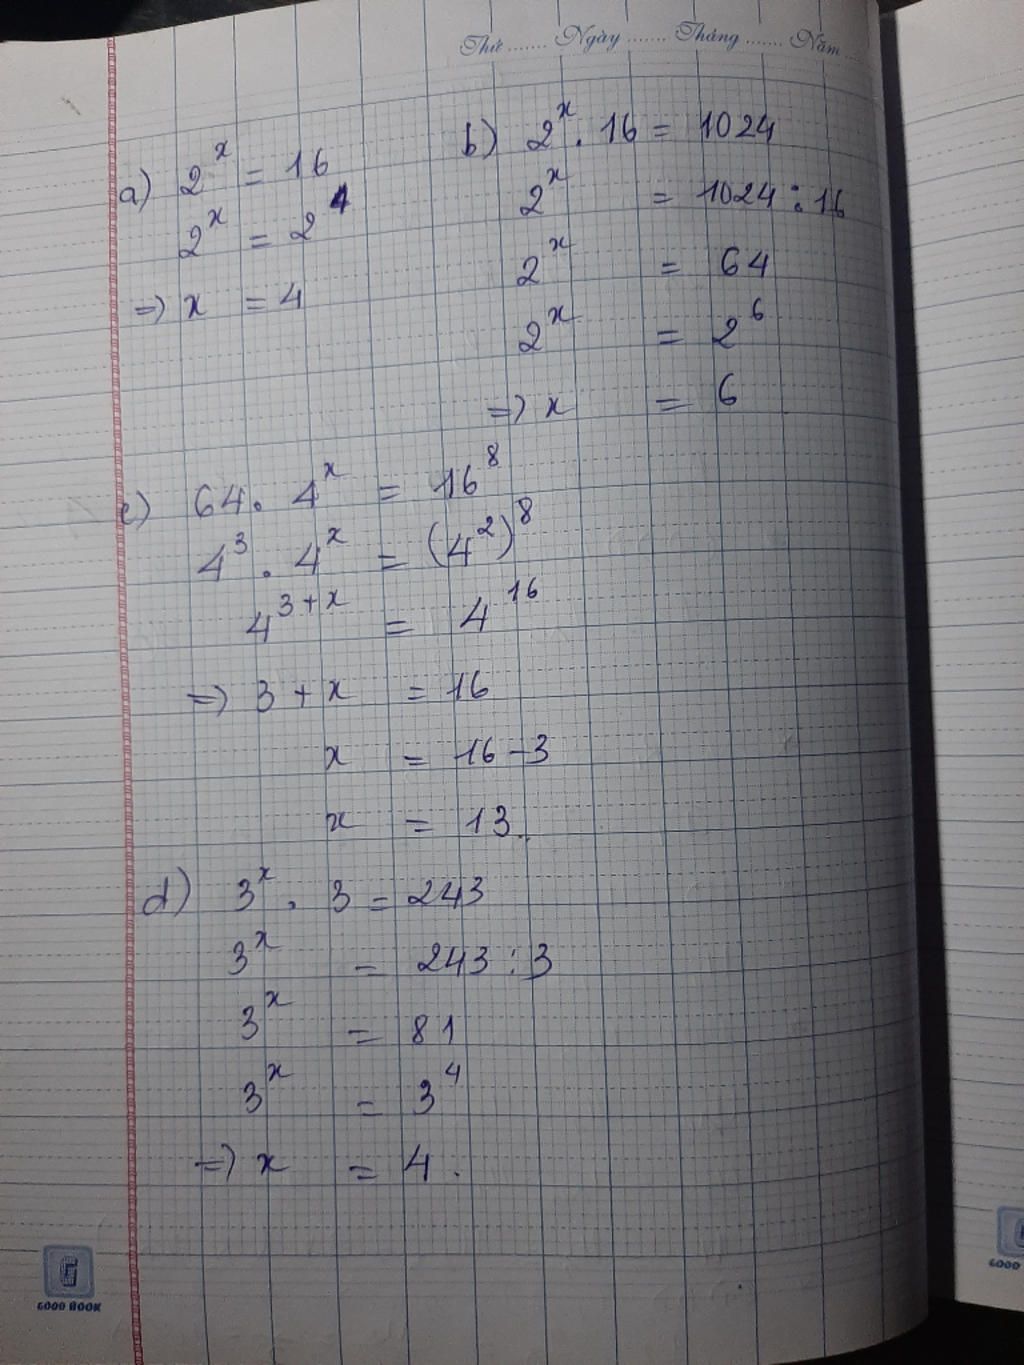 Thứ ....... Ngày ....... Tháng ....... Năm ....
a) 2^x = 16
2^x = 2^4
=> x = 4
b) 2^x . 16 = 1024
2^x = 1024 : 16
2^x = 64
2^x = 2^6
=> x = 6
c) 64 . 4^x = 16^8
4^3 . 4^x = (4^2)^8
4^{3+x} = 4^{16}
=> 3 + x = 16
x = 16 - 3
x = 13.
d) 3^x . 3 = 243
3^x = 243 : 3
3^x = 81
3^x = 3^4
=> x = 4.
G
GOOD BOOK
GOOD